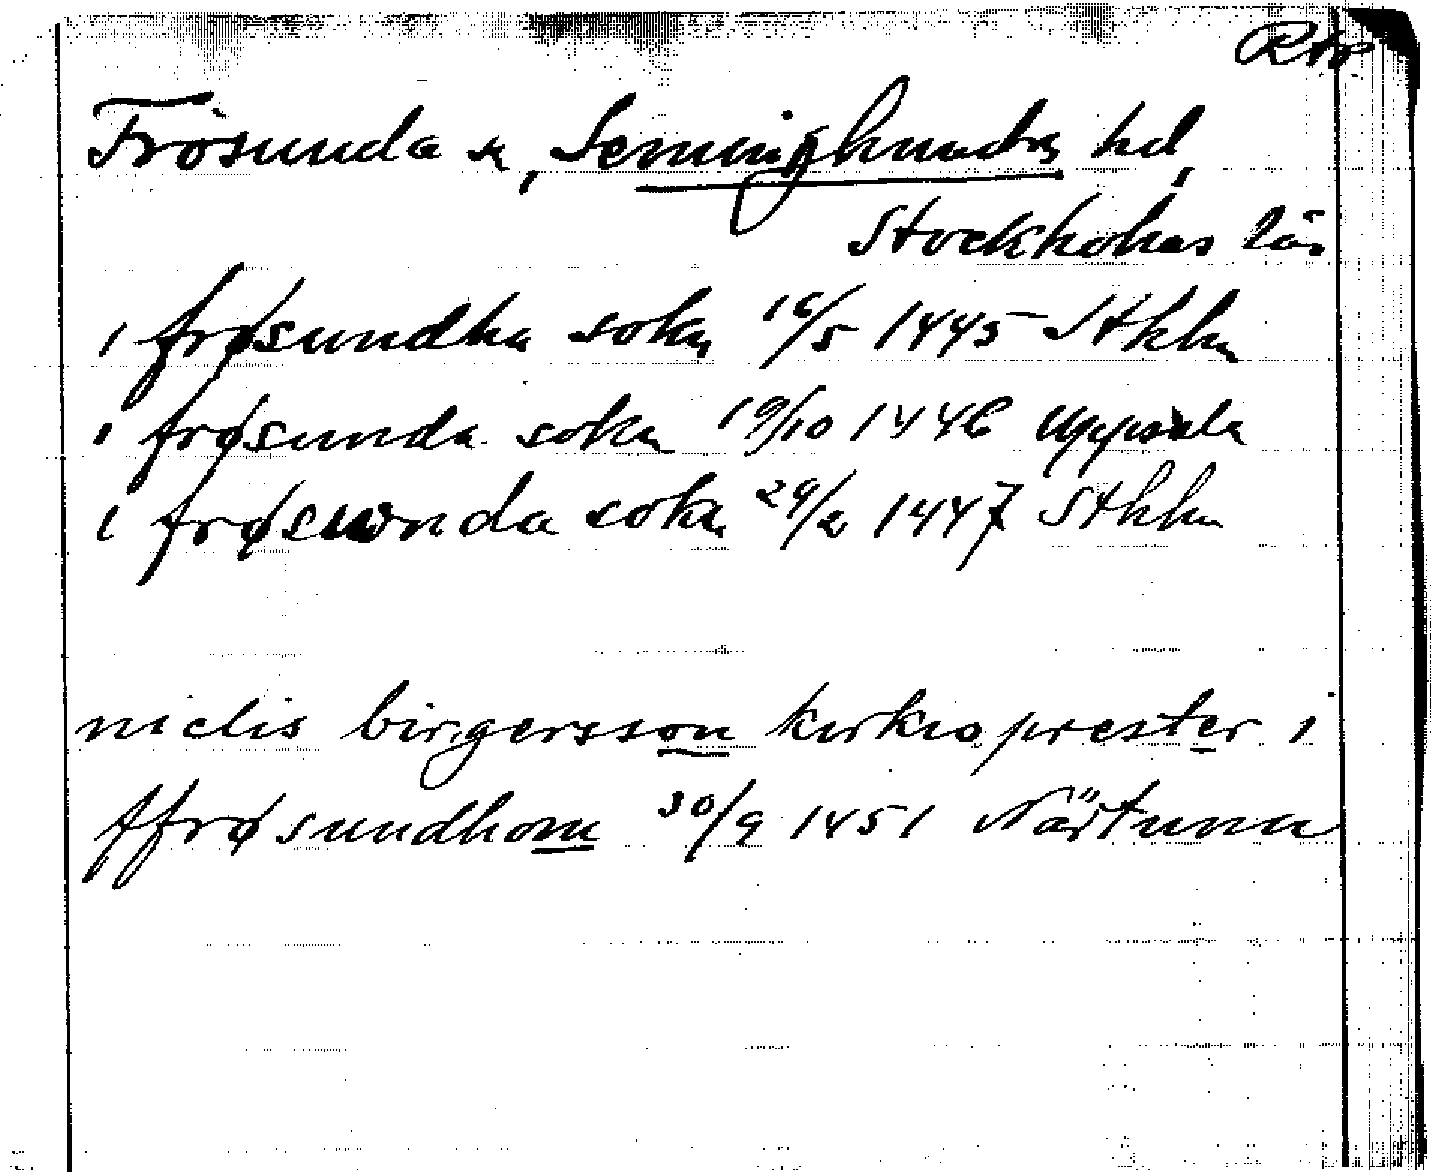 Rap
Frösunda sn, Seminghundra hd,
Stockholms län
i frøsundha sokn 16/5 1445 Sthlm
i frøsunda sokn 19/10 1446 Uppsala
i frøsunda sokn 29/2 1447 Sthlm
nielis birgersson kirkioprester i
ffrøsundhom 30/9 1451 Närtuna